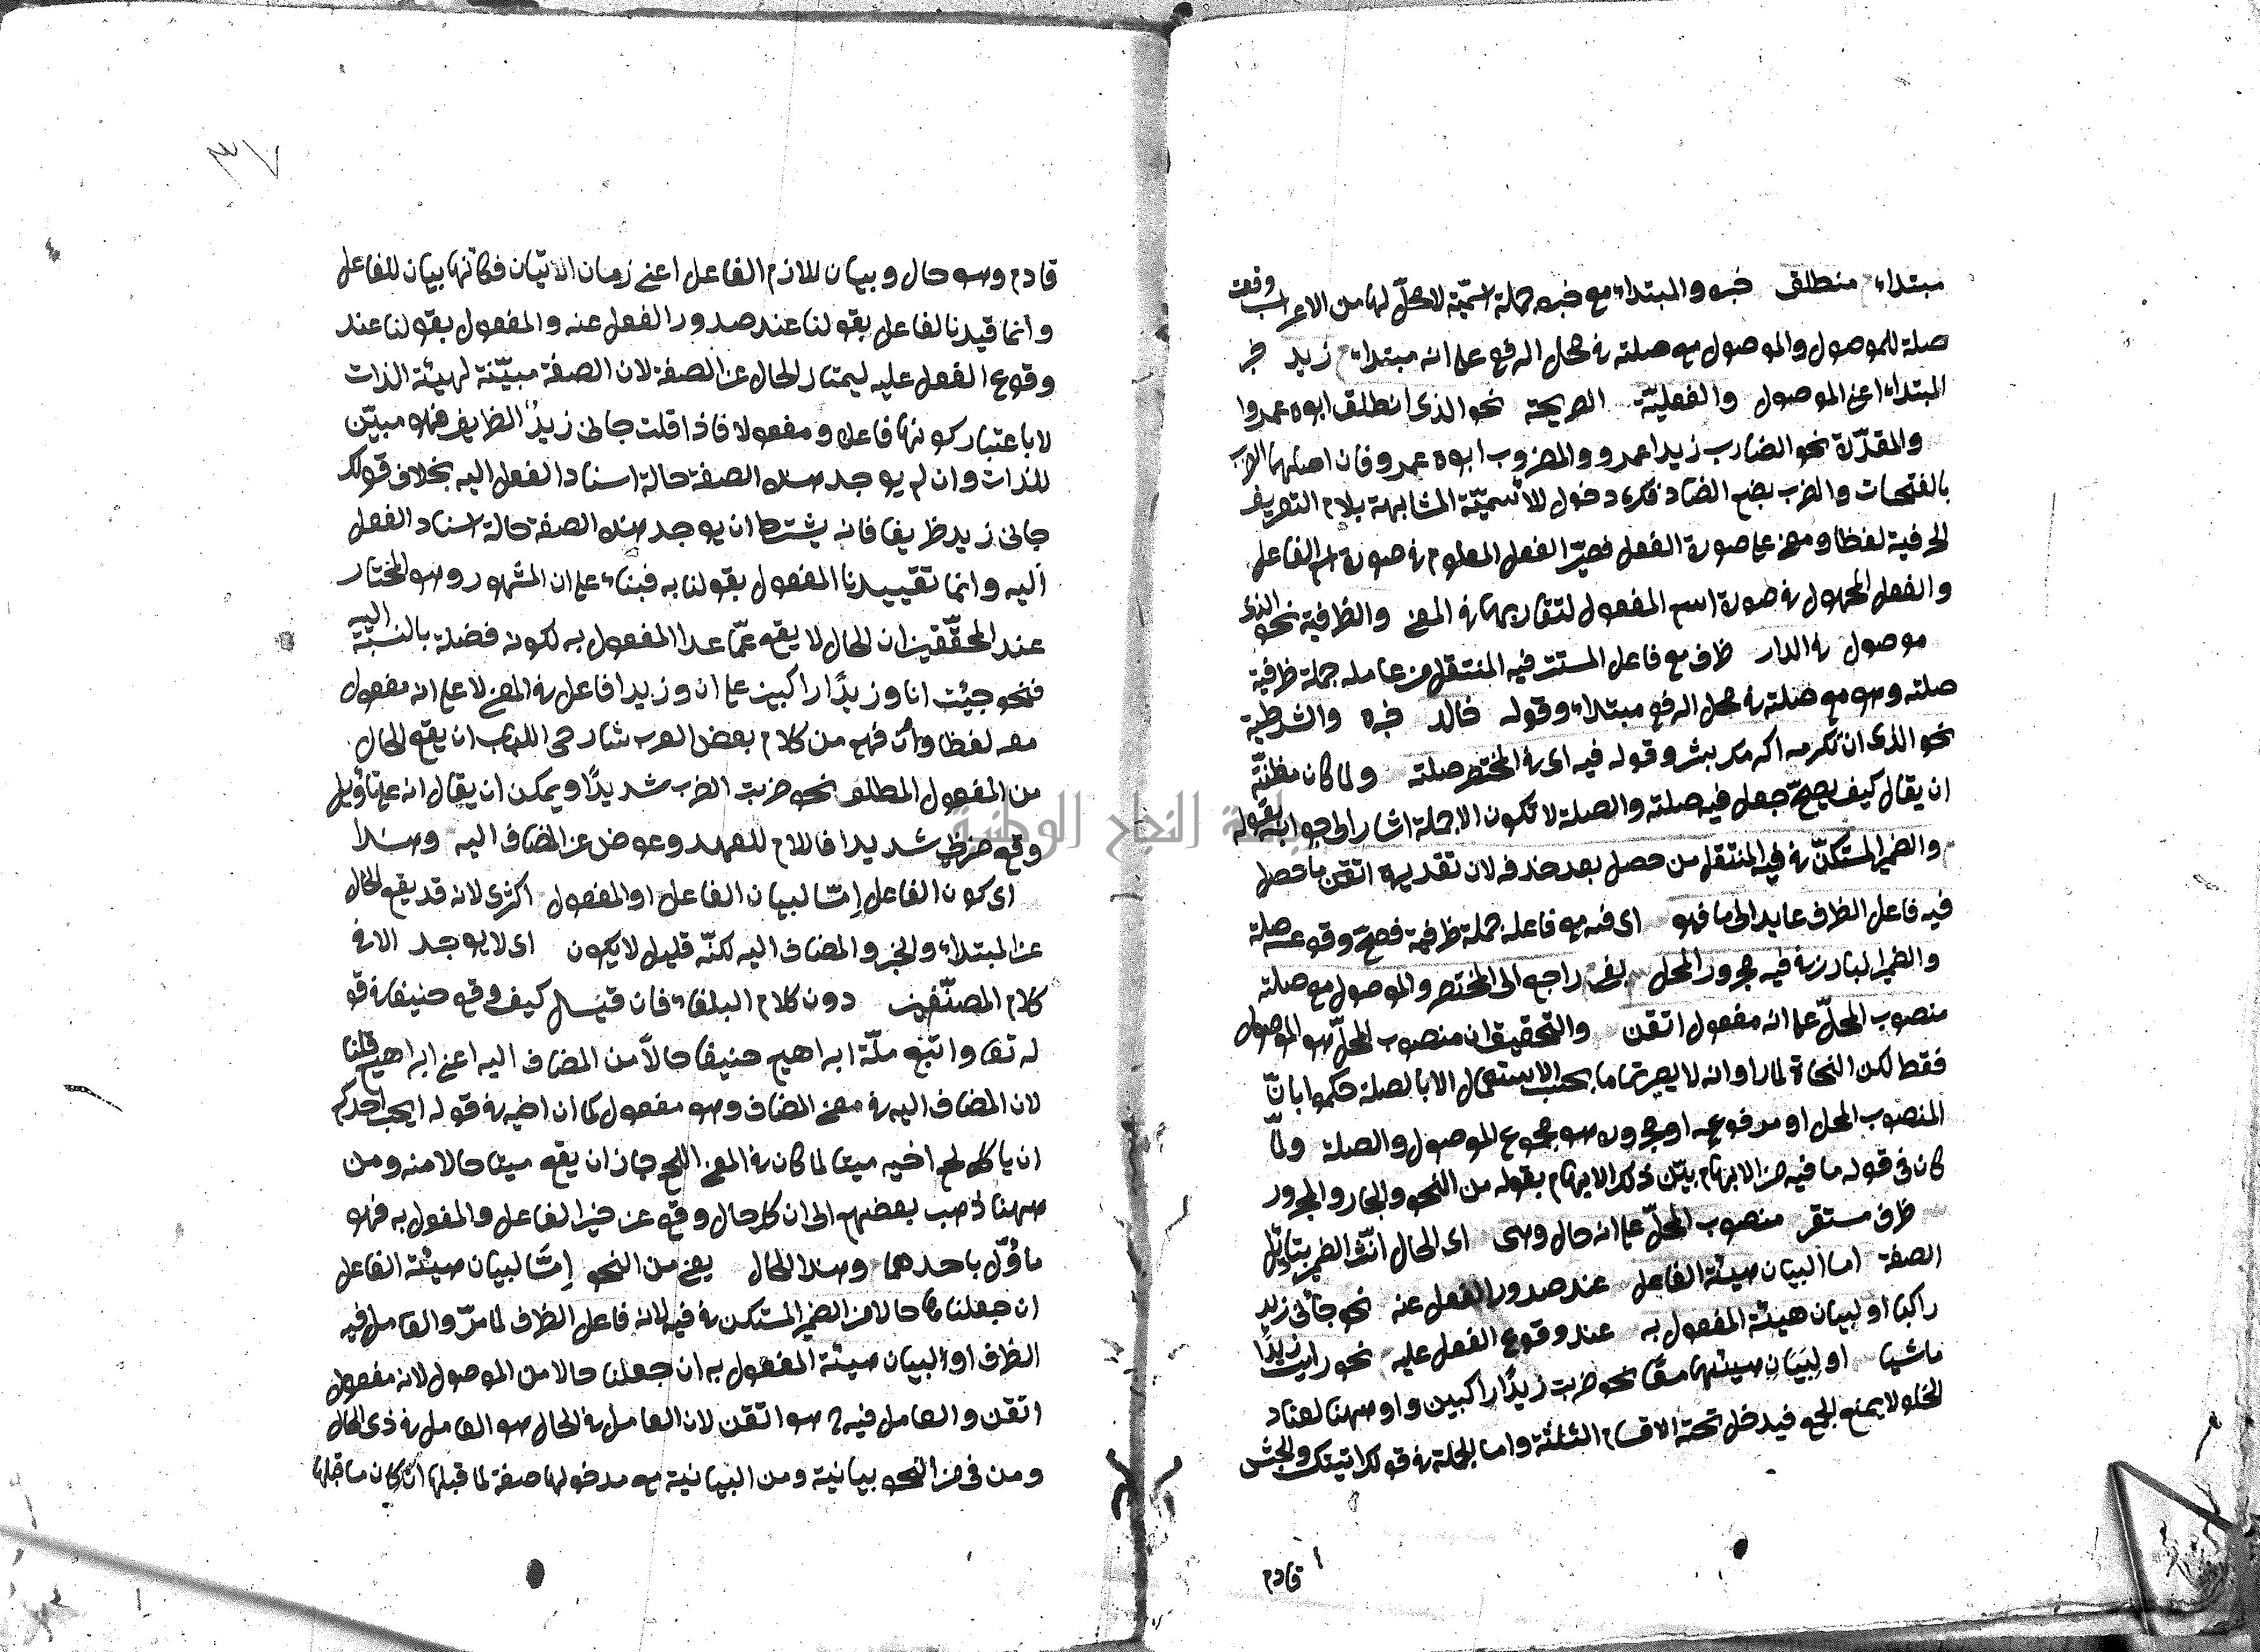 مبتداء منطلق خبره والمبتداء مع خبره جملة اسمّية لا محلّ لها من الاعراب وقعت
صلة للموصول والموصول مع صلته في محل الرفع على انه مبتداء زيد خبر
المبتداء اعني الموصول والفعليّة الصريحة نحو الذي انطلق ابوه عمروا
والمقدّرة نحو الضارب زيدا عمرو والمضروب ابوه عمرو فان اصلهما الضرب
بالفتحات والضرب بضم الضاد فكره دخول للأسميّة المشابهة بلام التعريف
الحرفية لفظا ومعنى على صورة الفعل فصيّر الفعل المعلوم في صورة اسم الفاعل
والفعل المجهول في صورة اسم المفعول لتقاربهما في المعنى والظرفية نحو الذي
موصول في الدار ظرف مع فاعل المستتر فيه المنتقل من عامله جملة ظرفية
صلته وهو مع صلته في محل الرفع مبتداء وقوله خالد خبره والشرطية
نحو الذي ان تكرمه اكرمك بشر وقوله فيه اي في المختصر صلته ولما كان مظنّة
ان يقال كيف يصحّ جعل فيه صلته والصلة لا تكون الا جملة اشار الى جوابه بقوله
والضمير المستكنّ في فيه المنتقل من حصل بعد حذفه لان تقديره اتقن ما حصل
فيه فاعل الظرف عايد الى ما فهو اي فيه مع فاعله جملة ظرفية فصحّ وقوعه صلة
والضمير البارز في فيه مجرور المحل بفي راجع الى المختصر والموصول مع صلته
منصوب المحلّ على انه مفعول اتقن والتحقيق ان منصوب المحلّ هو الموصول
فقط لكن النحاة لما راوا انه لا يصير تاما بحسب الاستعمال الا بالصلة حكموا بانّ
المنصوب المحل او مرفوعه او مجروره هو مجموع الموصول والصلة ولمّا
كان في قوله ما فيه من الابهام بيّن ذلك الابهام بقوله من النحو والجار والمجرور
ظرف مستقر منصوب المحلّ على انه حال وهي اي الحال انّث الضمير بتاويل
الصفة اما البيان هيئة الفاعل عند صدور الفعل عنه نحو جائني زيد
راكبا او لبيان هيئة المفعول به عند وقوع الفعل عليه نحو رايت زيدًا
ماشيا او لبيان هيئتهما معًا نحو ضربت زيدًا راكبين واو ههنا لعناد
الخلو لا يمنع الجمع فيدخل تحته الاقسام الثلثة واما الجملة في قولك اتيتك والجيش
قادم
٣٧
قادم وهو حال وبيان للازم الفاعل اعني زمان الاتيان فكانّها بيان للفاعل
وأنما قيدنا لفاعل بقولنا عند صدور الفعل عنه والمفعول بقولنا عند
وقوع الفعل عليه ليمتاز الحال عن الصفة لان الصفة مبيّنة لهيئة الذات
لا باعتبار كونها فاعلا ومفعولا فاذا قلت جاني زيدٌ الظريف فهو مبيّن
للذات وان لم يوجد هذه الصفة حالة اسناد الفعل اليه بخلاف قولك
جاني زيد ظريفا فانه يشترط ان يوجد هذه الصفة حالة اسناد الفعل
أليه وانما تقييدنا المفعول بقولنا به فبناء على ان المشهور وهو المختار
عند المحقّقين ان الحال لا يقع عمّا عدا المفعول به لكونه فضلة بالنسبة اليه
فنحو جيئت انا وزيدًا راكبين على ان وزيدا فاعل في المعنى لا على انه مفعول
معه لفظا وأن فهم من كلام بعض العرب شارحي اللباب ان يقع الحال
من المفعول المطلق نحو ضربت الضرب شديدًا ويمكن ان يقال انه على تاويل
وقع ضربي شديدا فاللام للعهد وعوض عن المضاف اليه وهذا
اي كون الفاعل إمّا لبيان الفاعل او المفعول اكثرى لانه قد يقع الحال
عن المبتداء والخبر والمضاف اليه لكنّه قليل لا يكون اى لا يوجد الا في
كلام المصنّفين دون كلام البلغاء فان قيل كيف وقع حنيفا في قو
له تعا واتبع ملّة ابراهيم حنيفا حالاً من المضاف اليه اعني ابراهيم قلنا
لان المضاف اليه في معنى المضاف وهو مفعول كما ان اخيه في قوله ايحب احدكم
ان ياكل لحم اخيه ميتا لما كان في المعنى اللحم جاز ان يقع ميتا حالا منه ومن
ههنا ذهب بعضهم الى ان كل حال وقع عن غير الفاعل والمفعول به فهو
ماؤّل باحدهما وهذا الحال يعني من النحو إمّا لبيان هيئة الفاعل
ان جعلناها حالا من الضمير المستكن في فيه لانه فاعل الظرف لما مرّ والعامل فيه
الظرف او البيان هيئة المفعول به ان جعلنا حالا من الموصول لانه مفعول
اتقن والعامل فيه ح هو اتقن لان العامل في الحال هو العامل في ذي الحال
ومن في من النحو بيانية ومن البيانية مع مدخولها صفة لما قبلها ان كان ما قبلها
جامعة النجاح الوطنية